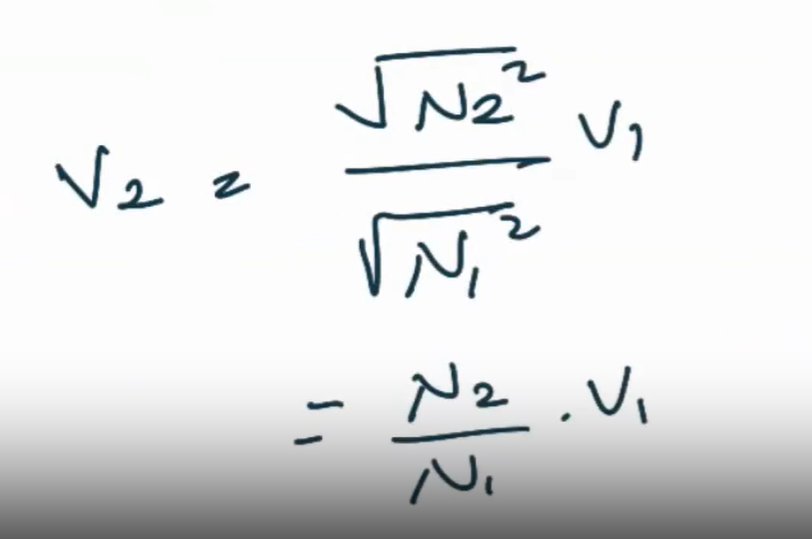 V₂ = √N₂² / √N₁² V₁
= N₂ / N₁ . V₁